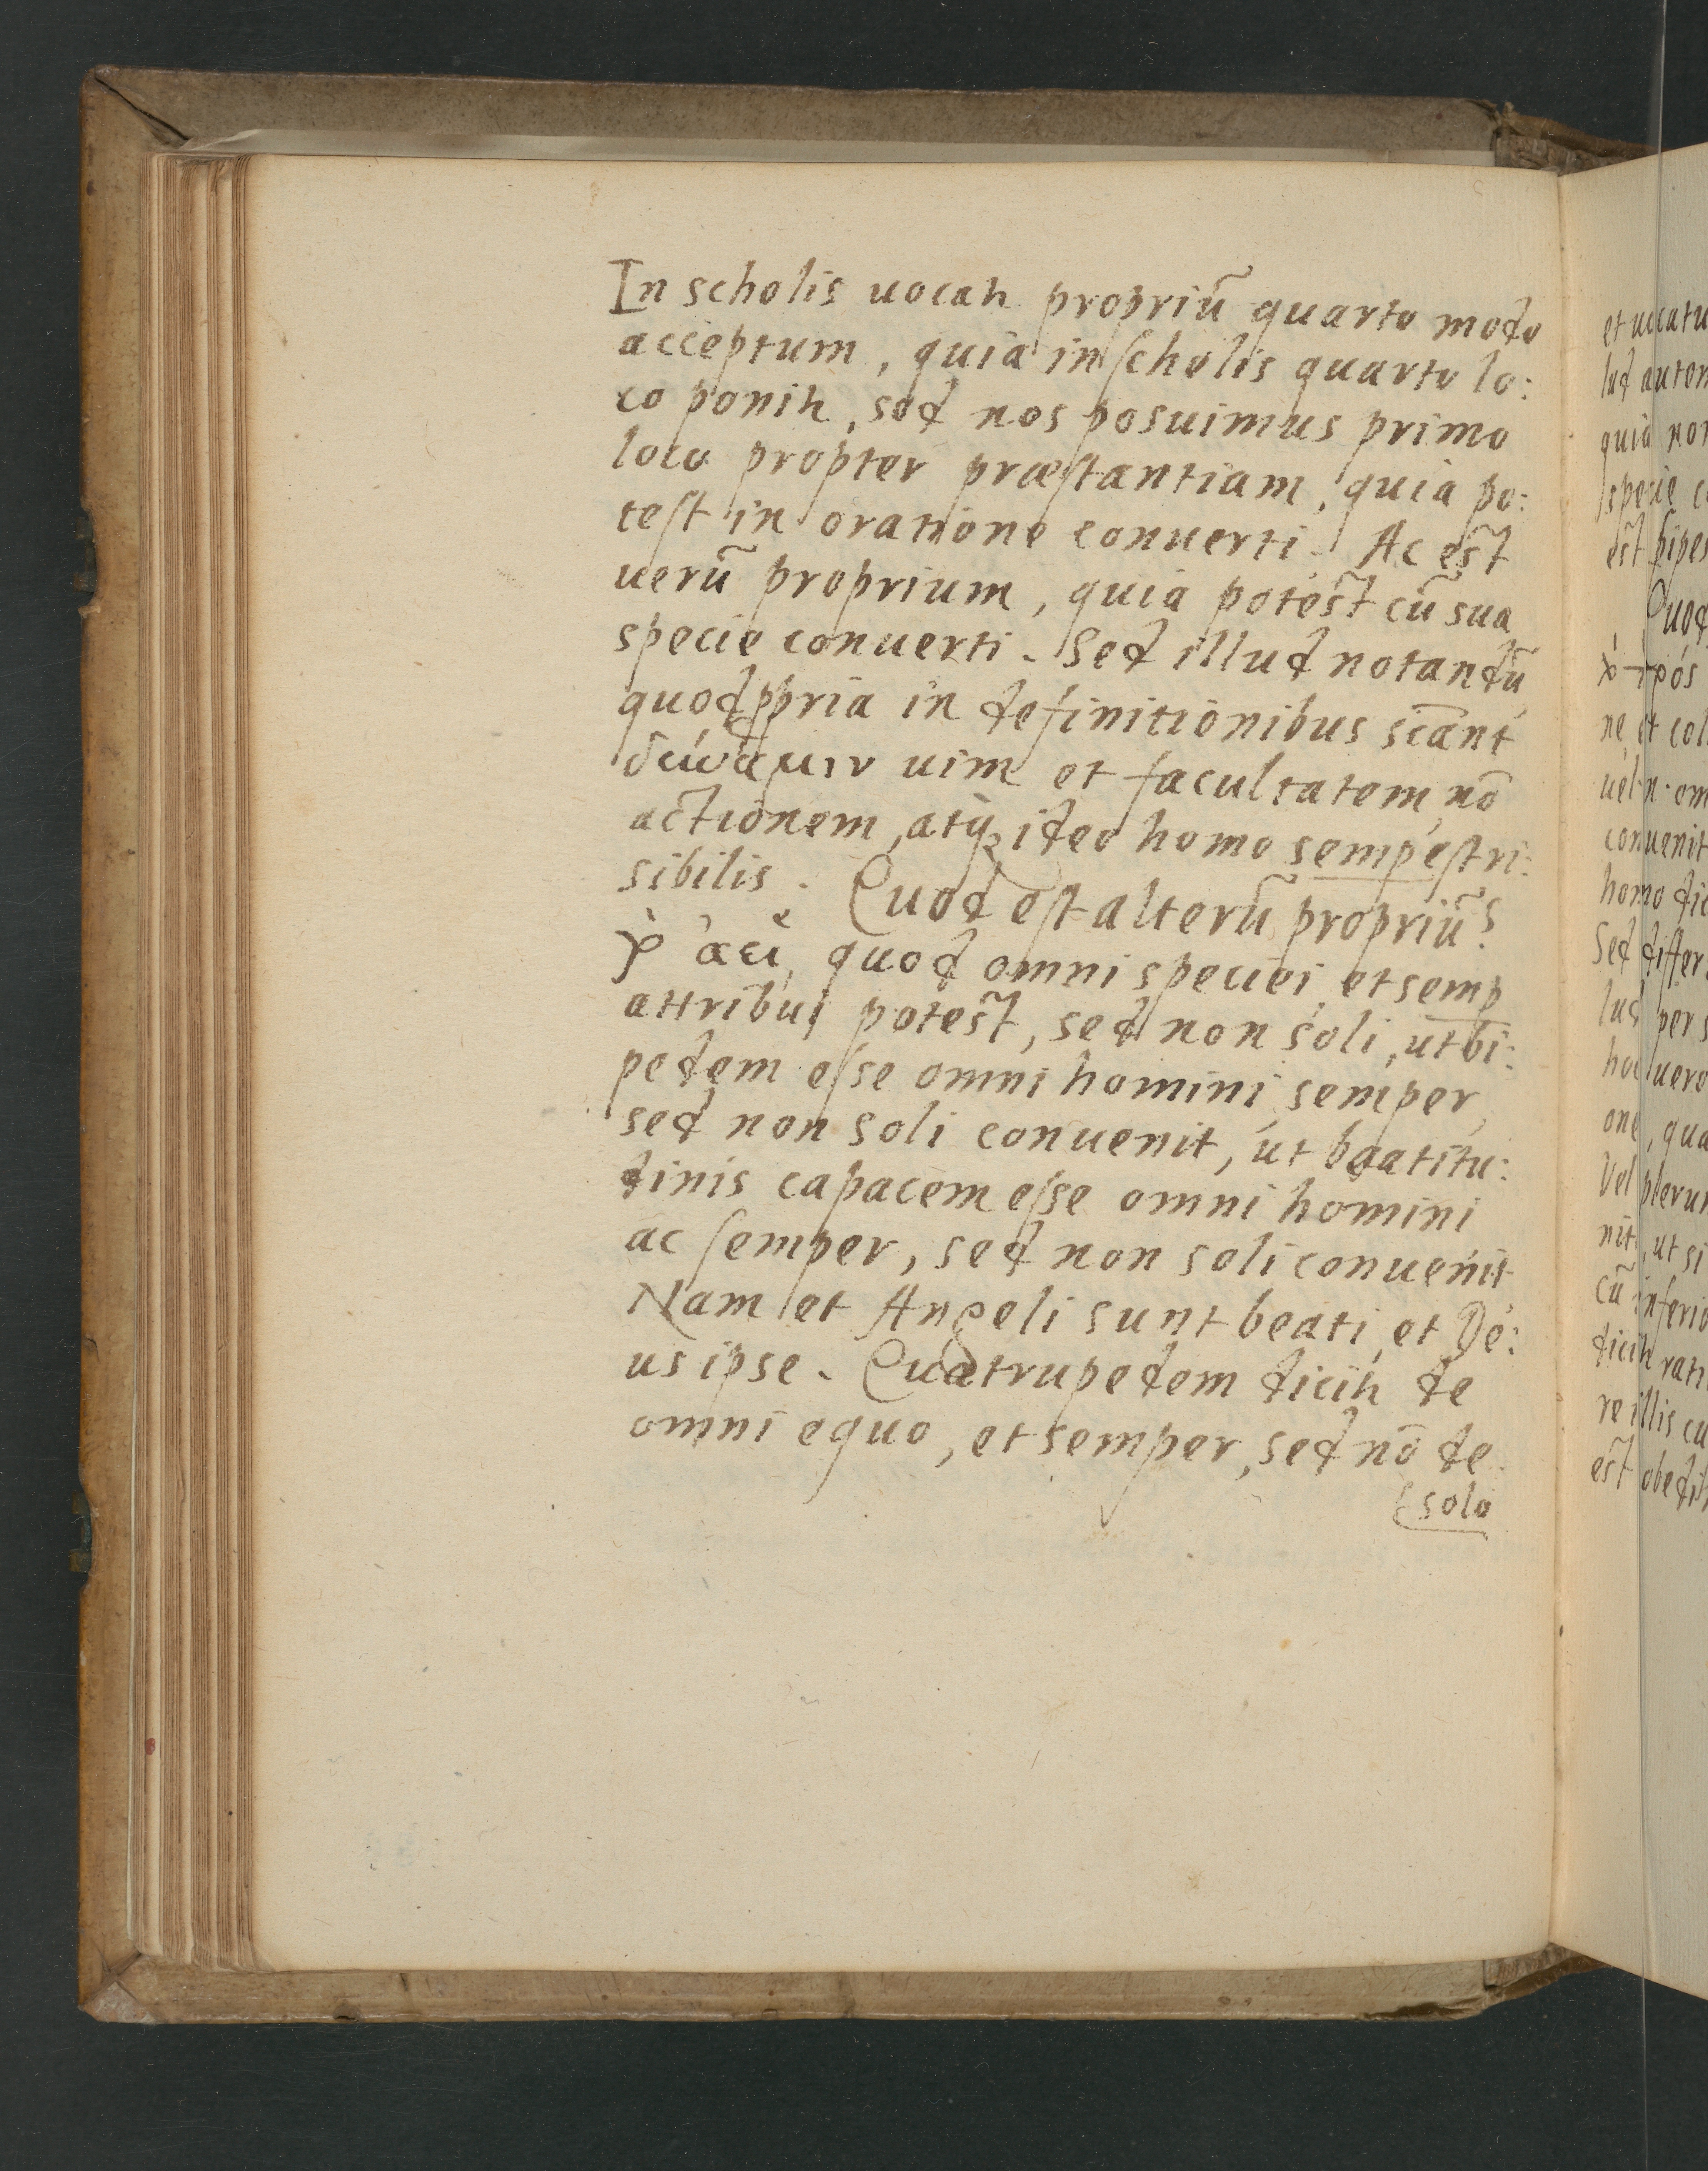 In scholis uocať propriũ quarto modo
acceptum, quia in ſcholis quarto lo:
co poniť, sed nos posuimus primo
loco propter præſtantiam, quia po:
teſt in oratione conuerti. Ac est
uerũ proprium, quia potest cũ sua
specie conuerti. Sed illud notandũ
quod ꝓpria in definitionibus sic̃ant
δύναμιν uim et facultatem, nõ
actionem, atq̃ꝫ ideo homo semp eſt ri:
sibilis. Quod eſt alterũ propriũ?
ἀεὶ, quod omni speciei et semp
attribui potest, sed non soli, ut bi:
pedem eſse omni homini semper,
sed non soli conuenit, ut beatitu:
dinis capacem eſse omni homini
ac ſemper, sed non soli conuenit
Nam et Angeli sunt beati, et De:
us ipse. Quatrupedem diciť de
omni equo, et semper, sed nõ de
solo
et uocatu
lud autem
quia non
specie c
est bipes
Quod
ne et col
uel n om
conuenit
homo dic
Sed differ
lud per s
hoc uero
one, qua
Vel plerun
nit, ut si
cũ inferio
diciť rati
re illis cu
est obedi